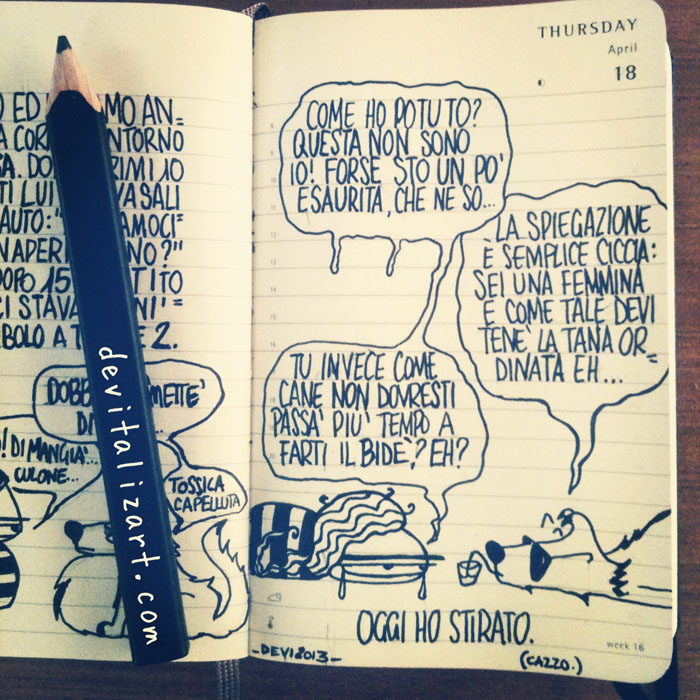 ED MO AN=
COR NTORNO
DO RIMI 10
TI LUI VASALI
AUTO: " AMOCI
N APERI NO?"
DOPO 15 TITO
CI STAVA NI'=
BOLO A T E 2.
DOBB METTE'
DI
! DI MANGIÀ...
CULONE...
TOSSICA
CAPELLUTA
devitalizart.com
THURSDAY
April
18
COME HO POTUTO?
QUESTA NON SONO
IO! FORSE STO UN PO'
ESAURITA, CHE NE SO...
LA SPIEGAZIONE
È SEMPLICE CICCIA:
SEI UNA FEMMINA
E COME TALE DEVI
TENE' LA TANA OR=
DINATA EH...
TU INVECE COME
CANE NON DOVRESTI
PASSA' PIU' TEMPO A
FARTI IL BIDE'? EH?
OGGI HO STIRATO.
(CAZZO.)
-DEVI2013-
week 16